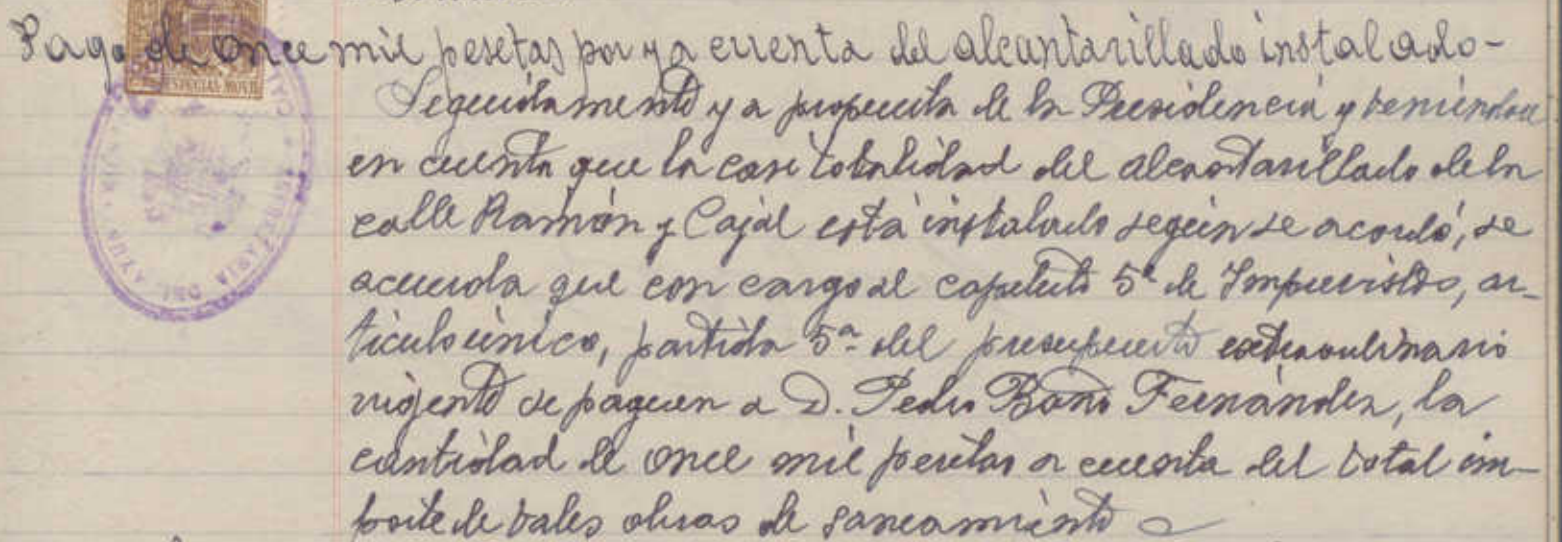 Pago de once mil pesetas por y a cuenta del alcantarillado instalado-
ESPECIAL MOVIL
Seguidamente y a propuesta de la Presidencia y teniéndose
en cuenta que la casi totalidad del alcantarillado de la
calle Ramón y Cajal está instalado según se acordó, se
acuerda que con cargo al capitulo 5º de Imprevistos, ar-
ticulo único, partida 5ª del presupuesto extraordinario
vigente se paguen a D. Pedro Baño Fernández, la
cantidad de once mil pesetas a cuenta del total im-
porte de tales obras de saneamiento